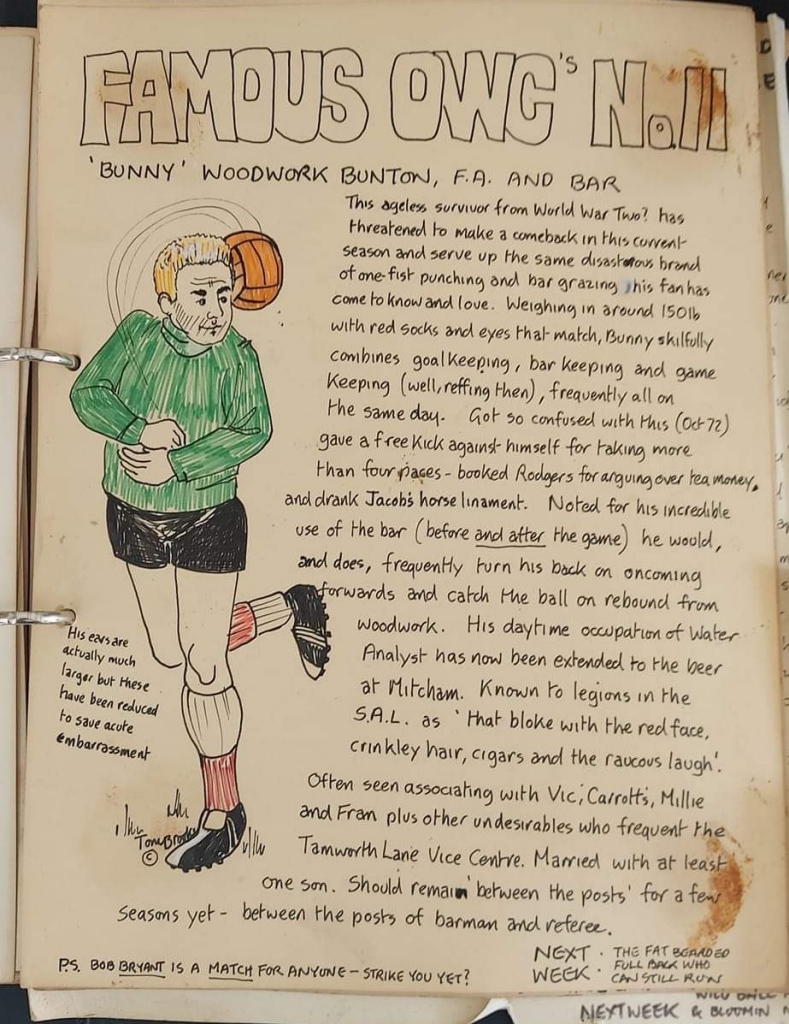 FAMOUS OWC'S No.11
'BUNNY' WOODWORK BUNTON, F.A. AND BAR
This ageless survivor from World War Two? has
threatened to make a comeback in this current
season and serve up the same disastorous brand
of one-fist punching and bar grazing, his fan has
come to know and love. Weighing in around 150lb
with red socks and eyes that match, Bunny skilfully
combines goalkeeping, bar keeping and game
keeping (well, reffing then), frequently all on
the same day. Got so confused with this (Oct 72)
gave a free kick against himself for taking more
than four paces - booked Rodgers for arguing over tea money,
and drank Jacob's horse linament. Noted for his incredible
use of the bar (before and after the game) he would,
and does, frequently turn his back on oncoming
forwards and catch the ball on rebound from
woodwork. His daytime occupation of Water
Analyst has now been extended to the beer
at Mitcham. Known to legions in the
S.A.L. as 'that bloke with the red face,
crinkley hair, cigars and the raucous laugh'.
Often seen associating with Vic, Carrott's, Millie
and Fran plus other undesirables who frequent the
Tamworth Lane Vice Centre. Married with at least
one son. Should remain 'between the posts' for a few
seasons yet - between the posts of barman and referee.
His ears are
actually much
larger but these
have been reduced
to save acute
embarrassment
Tony
©
P.S. BOB BRYANT IS A MATCH FOR ANYONE - STRIKE YOU YET?
NEXT WEEK . THE FAT BEARDED
FULL BACK WHO
CAN STILL RUN
NEXT WEEK